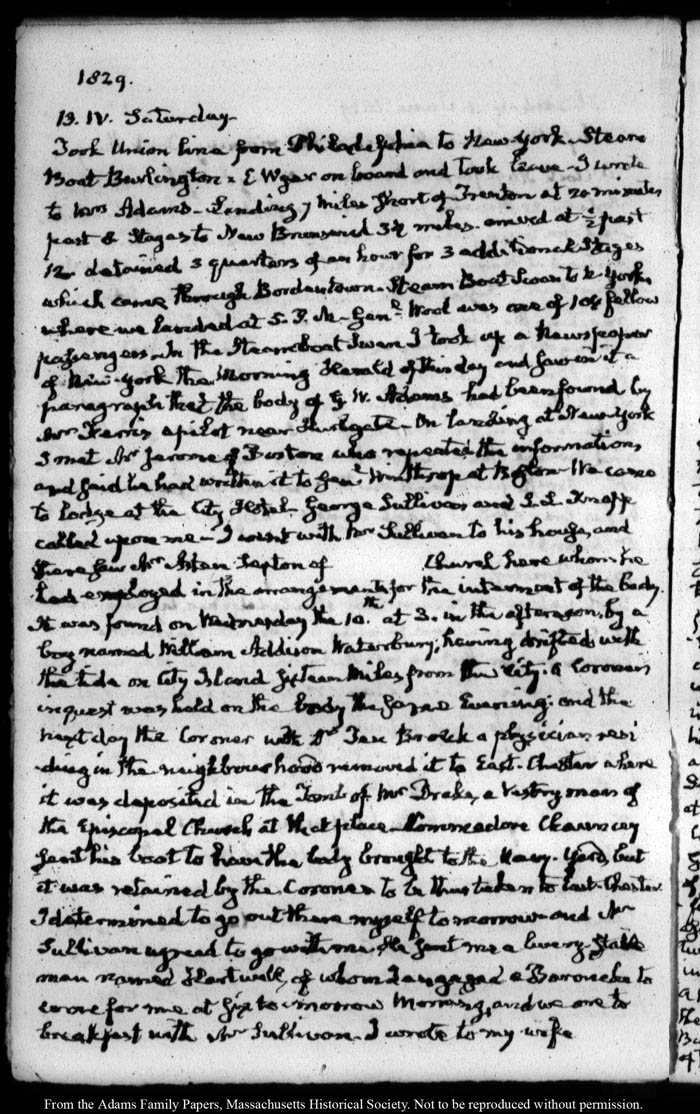 1829.
13. IV. Saturday.
Took Union line from Philadelphia to New York. Steam
Boat Burlington. E Wyer on board and took leave. I wrote
to Mrs Adams. Landing 7 Miles short of Trenton at 20 minutes
past 8 Stages to New Brunswick 34 miles. arrived at ½ past
12. detained 3 quarters of an hour for 3 additional Stages
which came through Bordentown. Steam Boat Swan to N. York,
where we landed at 5. P. M. Genl. Wool was one of 104 fellow
passengers. In the Steamboat Swan I took up a Newspaper
of New-York the Morning Herald of this day and saw in it a
paragraph that the body of G. W. Adams had been found by
Mr Ferris a pilot near Hurlgate. On landing at New York
I met Mr Jerome of Boston who repeated the information,
and said he had written it to Genl. Winthrop at Boston. We came
to lodge at the City Hotel. George Sullivan and S. L. Knapp
called upon me. I went with Mr Sullivan to his house, and
there saw Mr Asten Sexton of Church here whom he
had employed in the arrangements for the interment of the body.
It was found on Wednesday the 10.th at 3. in the afternoon, by a
boy named William Addison Waterbury, having drifted with
the tide on City Island sixteen Miles from this City. A Coroner's
inquest was held on the body the same Evening; and the
next day the Coroner with Dr a physician resi
ding in the neighbourhood removed it to East-Chester where
it was deposited in the Tomb of Mr Drake, a Vestry man of
the Episcopal Church at that place. Commodore Chauncey
sent his boat to have the body brought to the Navy-Yard, but
it was retained by the Coroner to be thus taken to East-Chester.
I determined to go out there myself to morrow and Mr
Sullivan agreed to go with me. He sent me a livery Stable
man named Hartwell, of whom I engaged a Barouche to
come for me at six to-morrow Morning, and we are to
breakfast with Mr Sullivan. I wrote to my wife
From the Adams Family Papers, Massachusetts Historical Society. Not to be reproduced without permission.